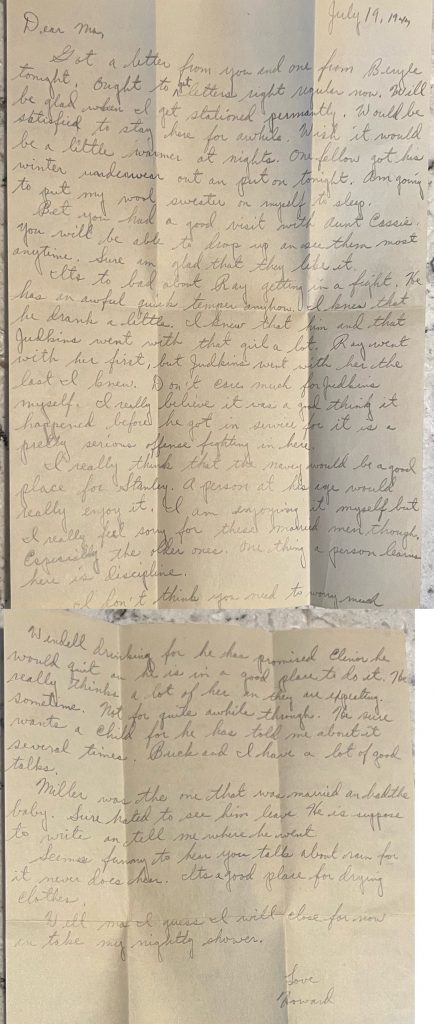 July 19, 1944
Dear Mom,
Got a letter from you and one from Beryle
tonight. Ought to get letters right regular now. Will
be glad when I get stationed permantly. Would be
satisfied to stay here for awhile. Wish it would
be a little warmer at nights. One fellow got his
winter underwear out an put on tonight. Am going
to put my wool sweater on myself to sleep.
Bet you had a good visit with Aunt Cassie.
you will be able to drop up an see them most
anytime. Sure im glad that they like it.
Its to bad about Ray getting in a fight. He
has an awful quick temper anyhow. I knew that
he drank a little. I knew that him and that
Judkins went with that girl a lot. Ray went
with her first, but Judkins went with her the
last I knew. Don't care much for Judkins
myself. I really believe it was a good thing it
happened before he got in service for it is a
pretty serious offense fighting in here.
I really think that the navy would be a good
place for Stanley. A person at his age would
really enjoy it. I am enjoying it myself but
I really feel sorry for these married men though.
Especially the older ones. One thing a person learns
here is discipline.
I don't think you need to worry much
Windell drinking for he has promised Elinor he
would quit an he is in a good place to do it. He
really thinks a lot of her an they are expecting.
sometime. Not for quite awhile though. He sure
wants a child for he has told me about it
several times. Buck and I have a lot of good
talks.
Miller was the one that was married an had the
baby. Sure hated to see him leave. He is suppose
to write an tell me where he went
Seemes funny to hear you talk about rain for
it never does hear. Its a good place for drying
clothes.
Well ma I guess I will close for now
an take my nightly shower.
Love
Howard